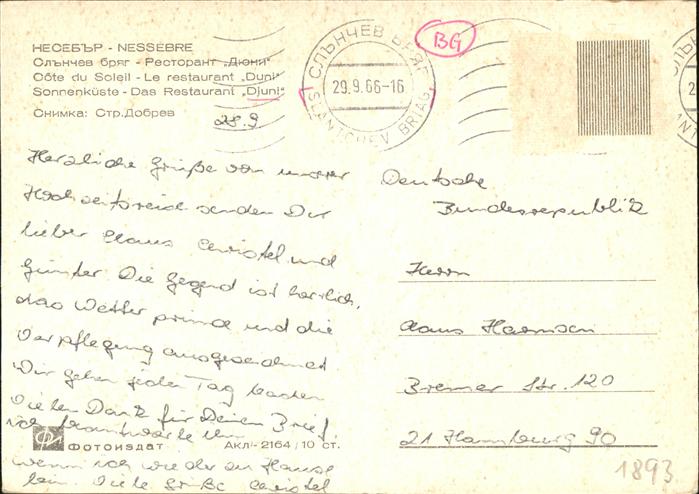 НЕСЕБЪР - NESSEBRE
Слънчев бряг - Ресторант „Дюни“
Côte du Soleil - Le restaurant „Duni“
Sonnenküste - Das Restaurant „Djuni“
Снимка: Стр. Добрев
28.9
СЛЪНЧЕВ БРЯГ
29.9.66-16
SLANTCHEV BRIAG
BG
Herzliche Grüße von unserer
Hochzeitsreise senden Dir
lieber Claus Christel und
Günter. Die Gegend ist herrlich,
das Wetter prima und die
Verpflegung ausgezeichnet
Wir gehen jeden Tag baden
Vielen Dank für Deinen Brief,
ich beantworte ihn
wenn ich wieder zu Hause
bin. Viele Grüße Christel
Фотоиздат
Акл-2164/10 ст.
Deutsche
Bundesrepublik
Herrn
Claus Harmsen
Bremer Str. 120
21 Hamburg 90
1893